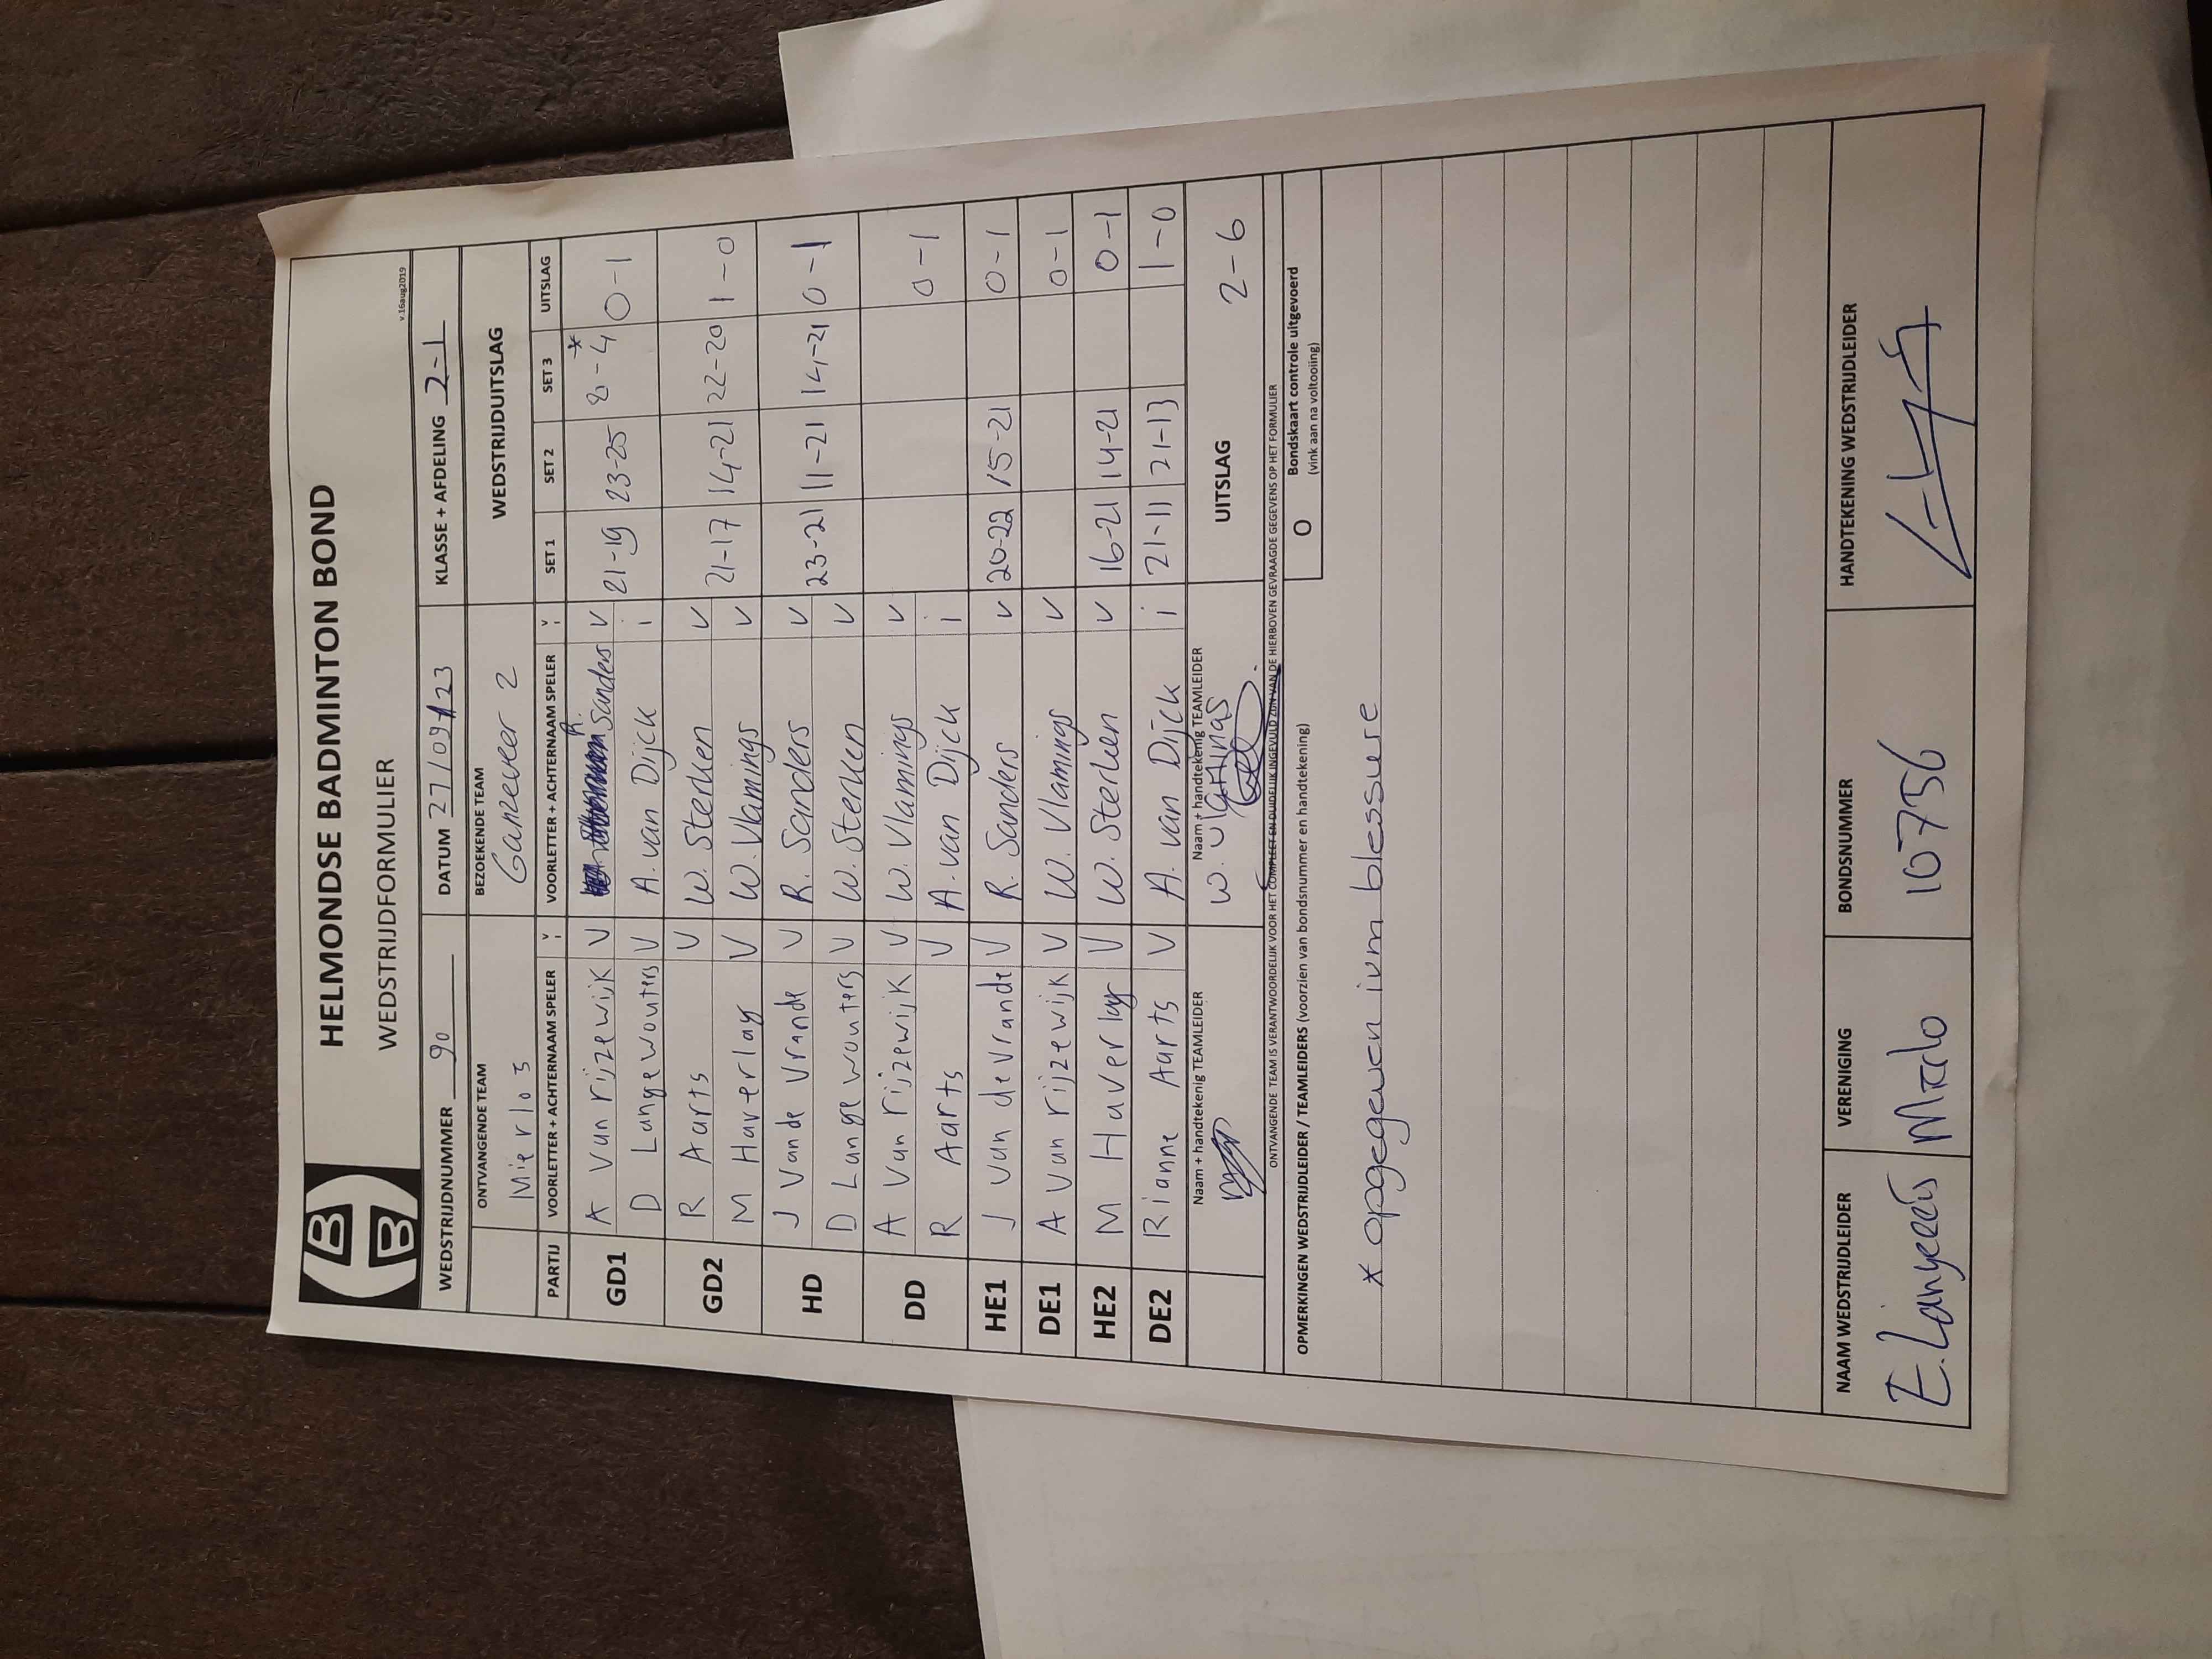 HELMONDSE BADMINTON BOND
WEDSTRIJDFORMULIER
v.16aug2019
WEDSTRIJDNUMMER 90 DATUM 27/09/23 KLASSE + AFDELING 2-1
ONTVANGENDE TEAM BEZOEKENDE TEAM WEDSTRIJDUITSLAG
Mierlo 3 Ganzeveer 2
PARTIJ VOORLETTER + ACHTERNAAM SPELER VOORLETTER + ACHTERNAAM SPELER SET 1 SET 2 SET 3 UITSLAG
GD1 A Van rijzewijk V R. Sanders V 21-19 23-25 0-1
D Langewouters V A. van Dijck i
GD2 R Aarts V W. Sterken V 21-17 14-21 22-20 1-0
M Haverlag V W. Vlamings V
HD J Vande Vrande V R. Sanders V 23-21 11-21 14-21 0-1
D Langewouters V W. Sterken V
DD A Van rijzewijk V W. Vlamings V 0-1
R Aarts V A. van Dijck i
HE1 J van devrande V R. Sanders V 20-22 15-21 0-1
DE1 A van rijzewijk V W. Vlamings V 0-1
HE2 M Haverlag V W. Sterken V 16-21 14-21 0-1
DE2 Rianne Aarts V A. van Dijck i 21-11 21-13 1-0
Naam + handtekenig TEAMLEIDER Naam + handtekenig TEAMLEIDER UITSLAG 2-6
ONTVANGENDE TEAM IS VERANTWOORDELIJK VOOR HET COMPLEET EN DUIDELIJK INGEVULD ZIJN VAN DE HIERBOVEN GEVRAAGDE GEGEVENS OP HET FORMULIER
OPMERKINGEN WEDSTRIJDLEIDER / TEAMLEIDERS (voorzien van bondsnummer en handtekening) O Bondskaart controle uitgevoerd
(vink aan na voltooiing)
* opgegeven ivm blessure
NAAM WEDSTRIJDLEIDER VERENIGING BONDSNUMMER HANDTEKENING WEDSTRIJDLEIDER
E. 10756